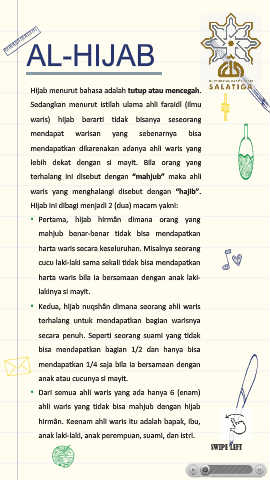 AL-HIJAB
SALATIGA
Hijab menurut bahasa adalah tutup atau mencegah.
Sedangkan menurut istilah ulama ahli faraidl (ilmu
waris) hijab berarti tidak bisanya seseorang
mendapat warisan yang sebenarnya bisa
mendapatkan dikarenakan adanya ahli waris yang
lebih dekat dengan si mayit. Bila orang yang
terhalang ini disebut dengan “mahjub” maka ahli
waris yang menghalangi disebut dengan “hajib”.
Hijab ini dibagi menjadi 2 (dua) macam yakni:
• Pertama, hijab hirmân dimana orang yang
mahjub benar-benar tidak bisa mendapatkan
harta waris secara keseluruhan. Misalnya seorang
cucu laki-laki sama sekali tidak bisa mendapatkan
harta waris bila ia bersamaan dengan anak laki-
lakinya si mayit.
• Kedua, hijab nuqshân dimana seorang ahli waris
terhalang untuk mendapatkan bagian warisnya
secara penuh. Seperti seorang suami yang tidak
bisa mendapatkan bagian 1/2 dan hanya bisa
mendapatkan 1/4 saja bila ia bersamaan dengan
anak atau cucunya si mayit.
• Dari semua ahli waris yang ada hanya 6 (enam)
ahli waris yang tidak bisa mahjub dengan hijab
hirmân. Keenam ahli waris itu adalah bapak, ibu,
anak laki-laki, anak perempuan, suami, dan istri.
SWIPE LEFT